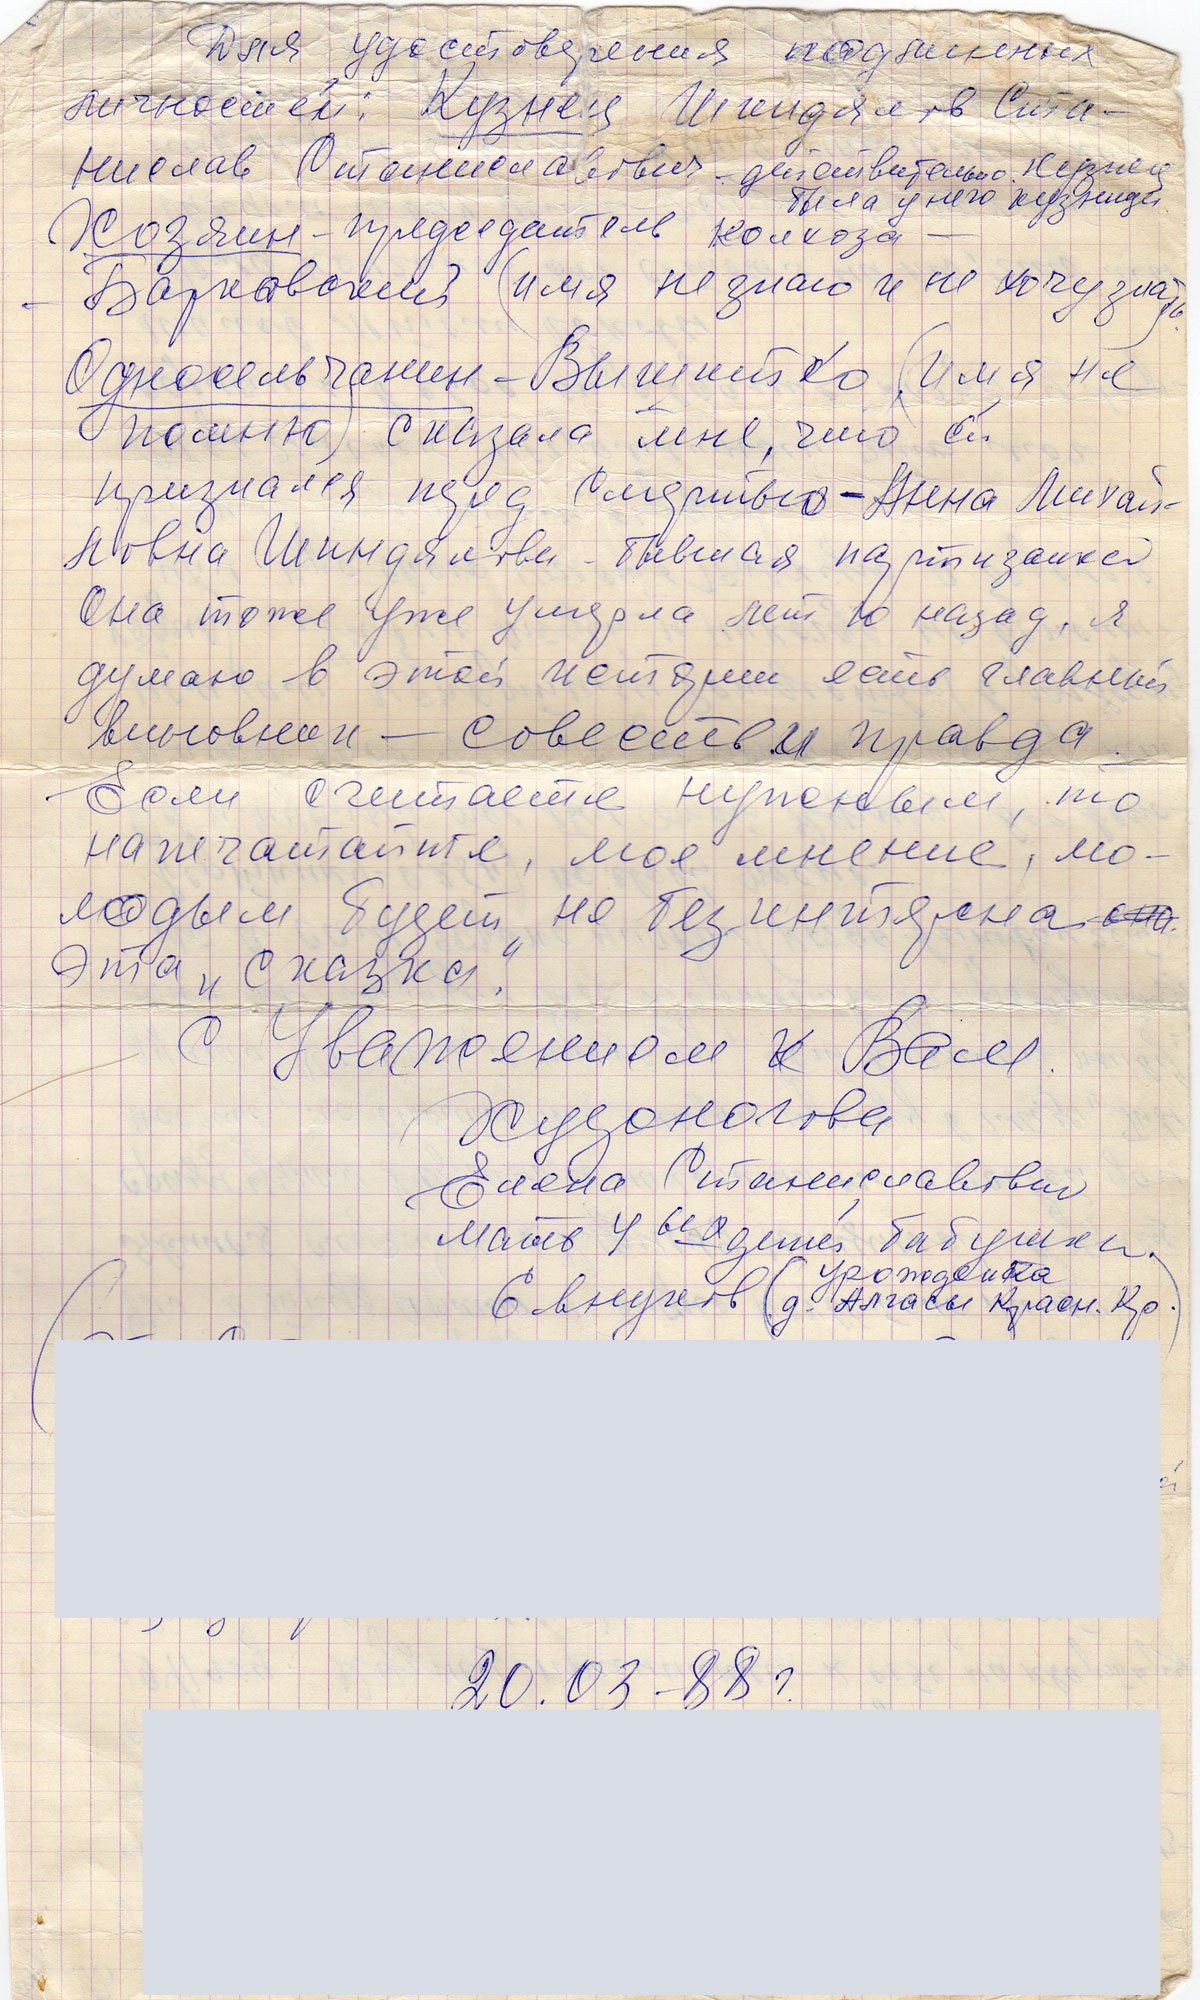 Для удостоверения подлинных
личностей: Кузнец Шкидялов Ста-
нислав Станиславович – действительно. Кузнец
была у него кузница.
Хозяин – председатель колхоза –
– Барковский (имя не знаю и не хочу знать).
Односельчанин – Вышитко (имя не
помню) сказала мне, что ей
признался перед смертью – Анна Михай-
ловна – бывшая партизанка
Она тоже уже умерла лет 10 назад, я
думаю в этой истории есть главный
виновник – совесть и правда.
Если считаете нужным, то
напечатайте, мое мнение, мо-
лодым будет не безинтересна
эта „Сказка".
С Уважением к Вам.
Худоногова
Елена Станиславовна
мать 4ых детей бабушка.
6 внуков (урожденка
д. Алгасы Красн. Кр.)
20.03–88 г.